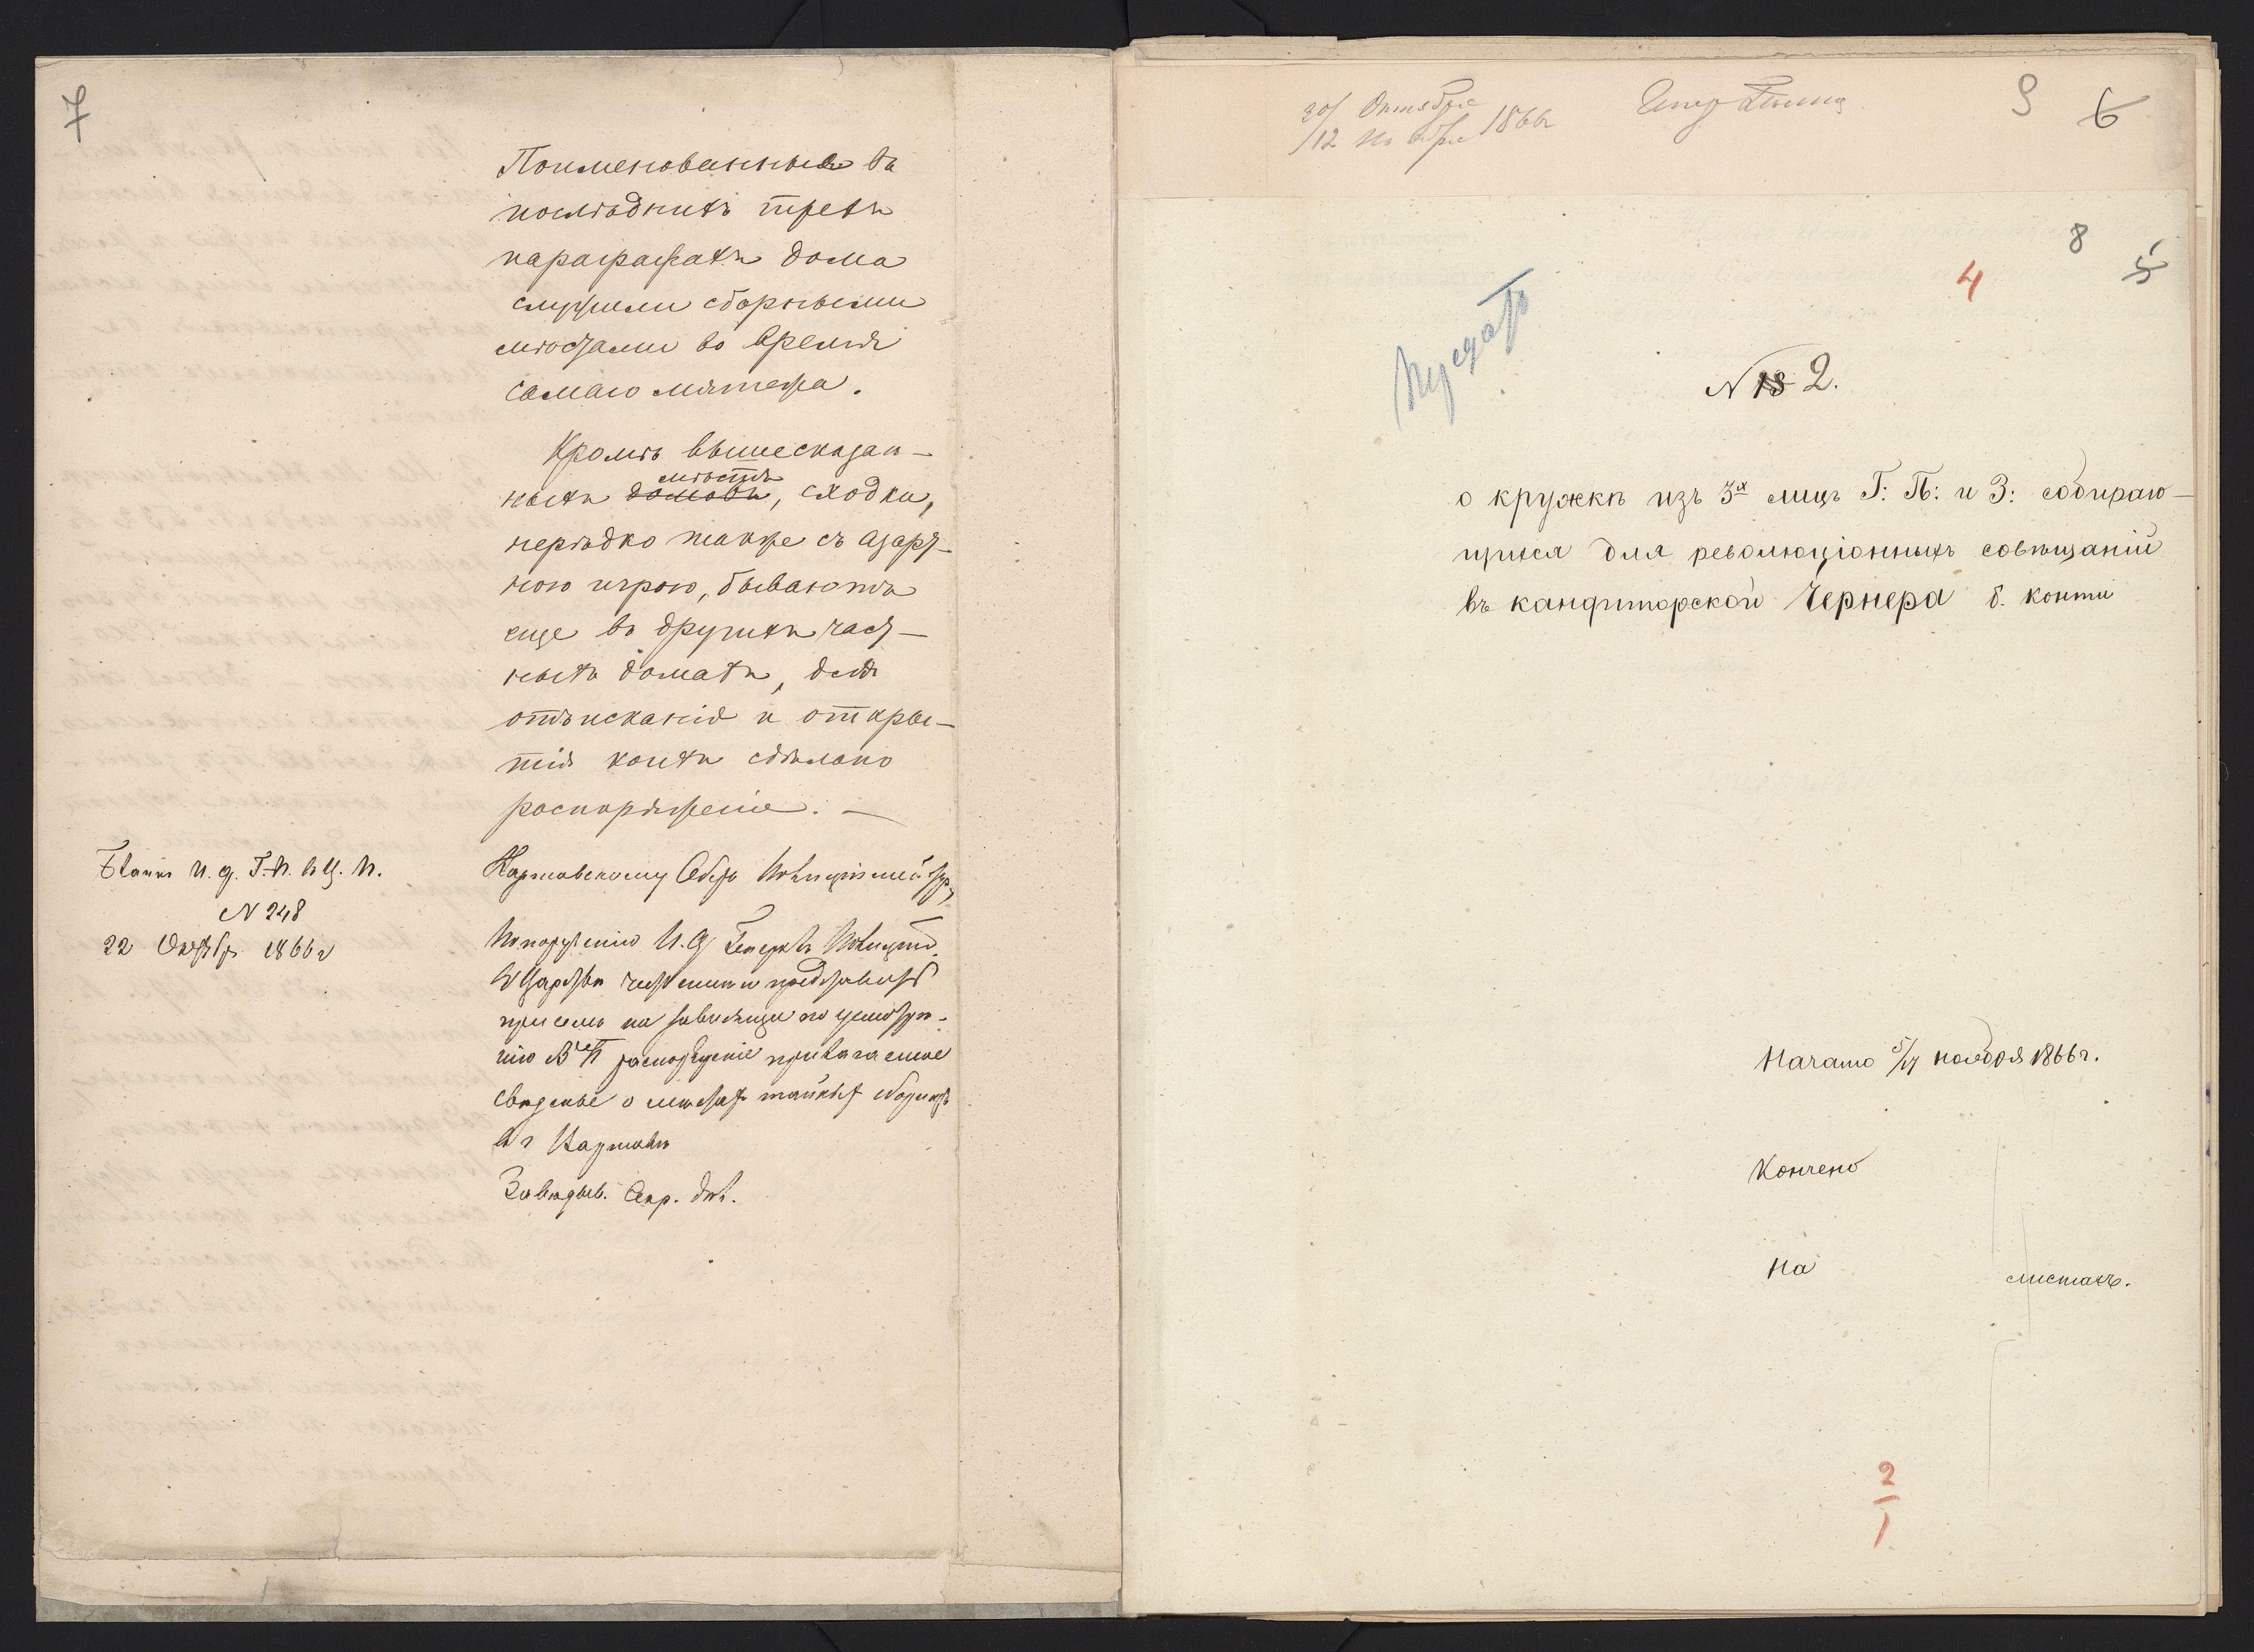 7
Поименованные въ
послѣднихъ трехъ
параграфахъ дома
служили сборными
мѣстами во время
самаго мятежа.
Кромѣ вышесказан-
мѣстъ
ныхъ домовъ, сходки,
нерѣдко также съ азарт-
ною игрою, бываютъ
еще въ другихъ част-
ныхъ домахъ, для
отъисканія и откры-
тія коихъ сдѣлано
распоряженіе. —
Бланкъ И. д. Г. П. в Ц. П.
N 248
22 Октябр. 1866 г
Варшавскому Оберъ Полиціймейстеру
По порученію И. д. Генералъ Полицій.
в Царствѣ честь имѣю представить
при семъ на зависящее по усмотрѣ-
нію В П распоряженіе прилагаемое
свѣденіе о мѣстахъ тайныхъ сборищъ
в г Варшавѣ
Завѣдыв. Секр. дѣл.
30/ Октября
/12 Ноября 1866
9 6
8
4 5
N 18 2.
о кружкѣ изъ 3х лицъ Г: П: и З: собираю-
щихся для революціонныхъ совѣщаній
въ кандиторской Чернера б. конти
Начато 5/17 ноября 1866 г.
Кончено
На листахъ.
2
1